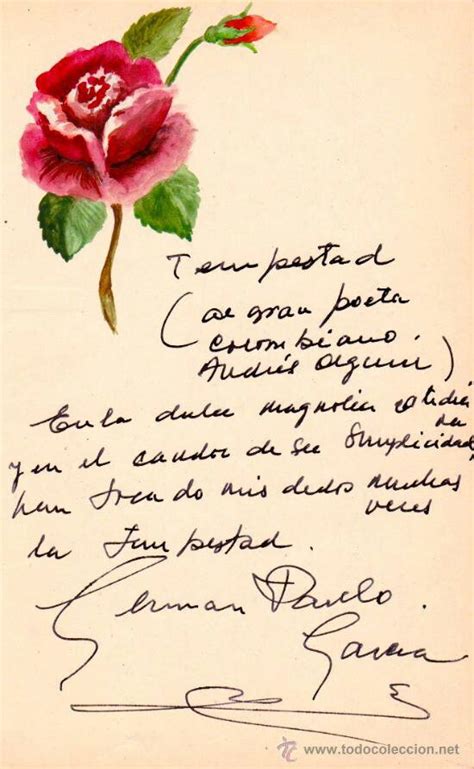 Tempestad
(al gran poeta
colombiano.
Andrés Olguin)
En la dulce magnolia cotidia
na
y en el candor de su simplicidad,
han tocado mis dedos muchas
veces
la Tempestad.
German Pardo
Garcia
tc
www.todocoleccion.net